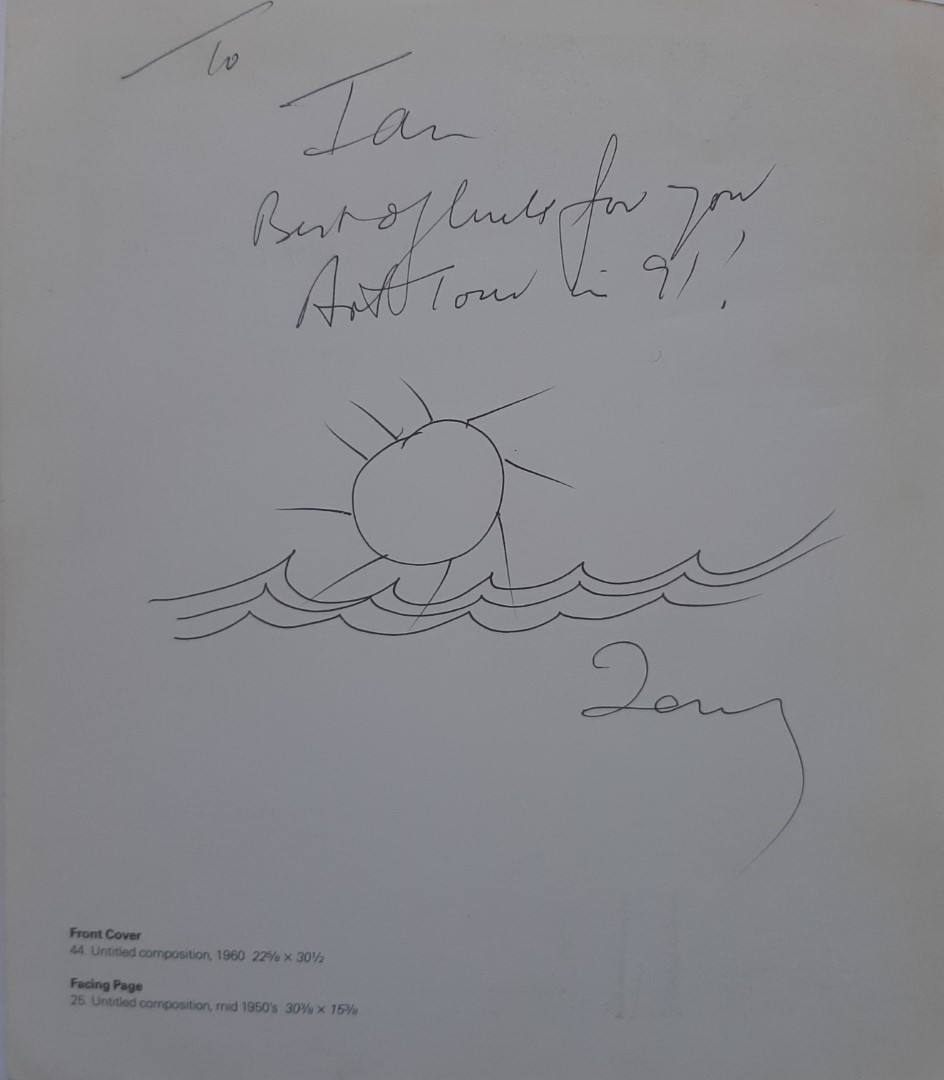 To
Ian
Best of luck for your
Art Tour in 91!
Front Cover
44. Untitled composition, 1960 22⅝ × 30½
Facing Page
25. Untitled composition, mid 1950's 30⅜ × 15⅜